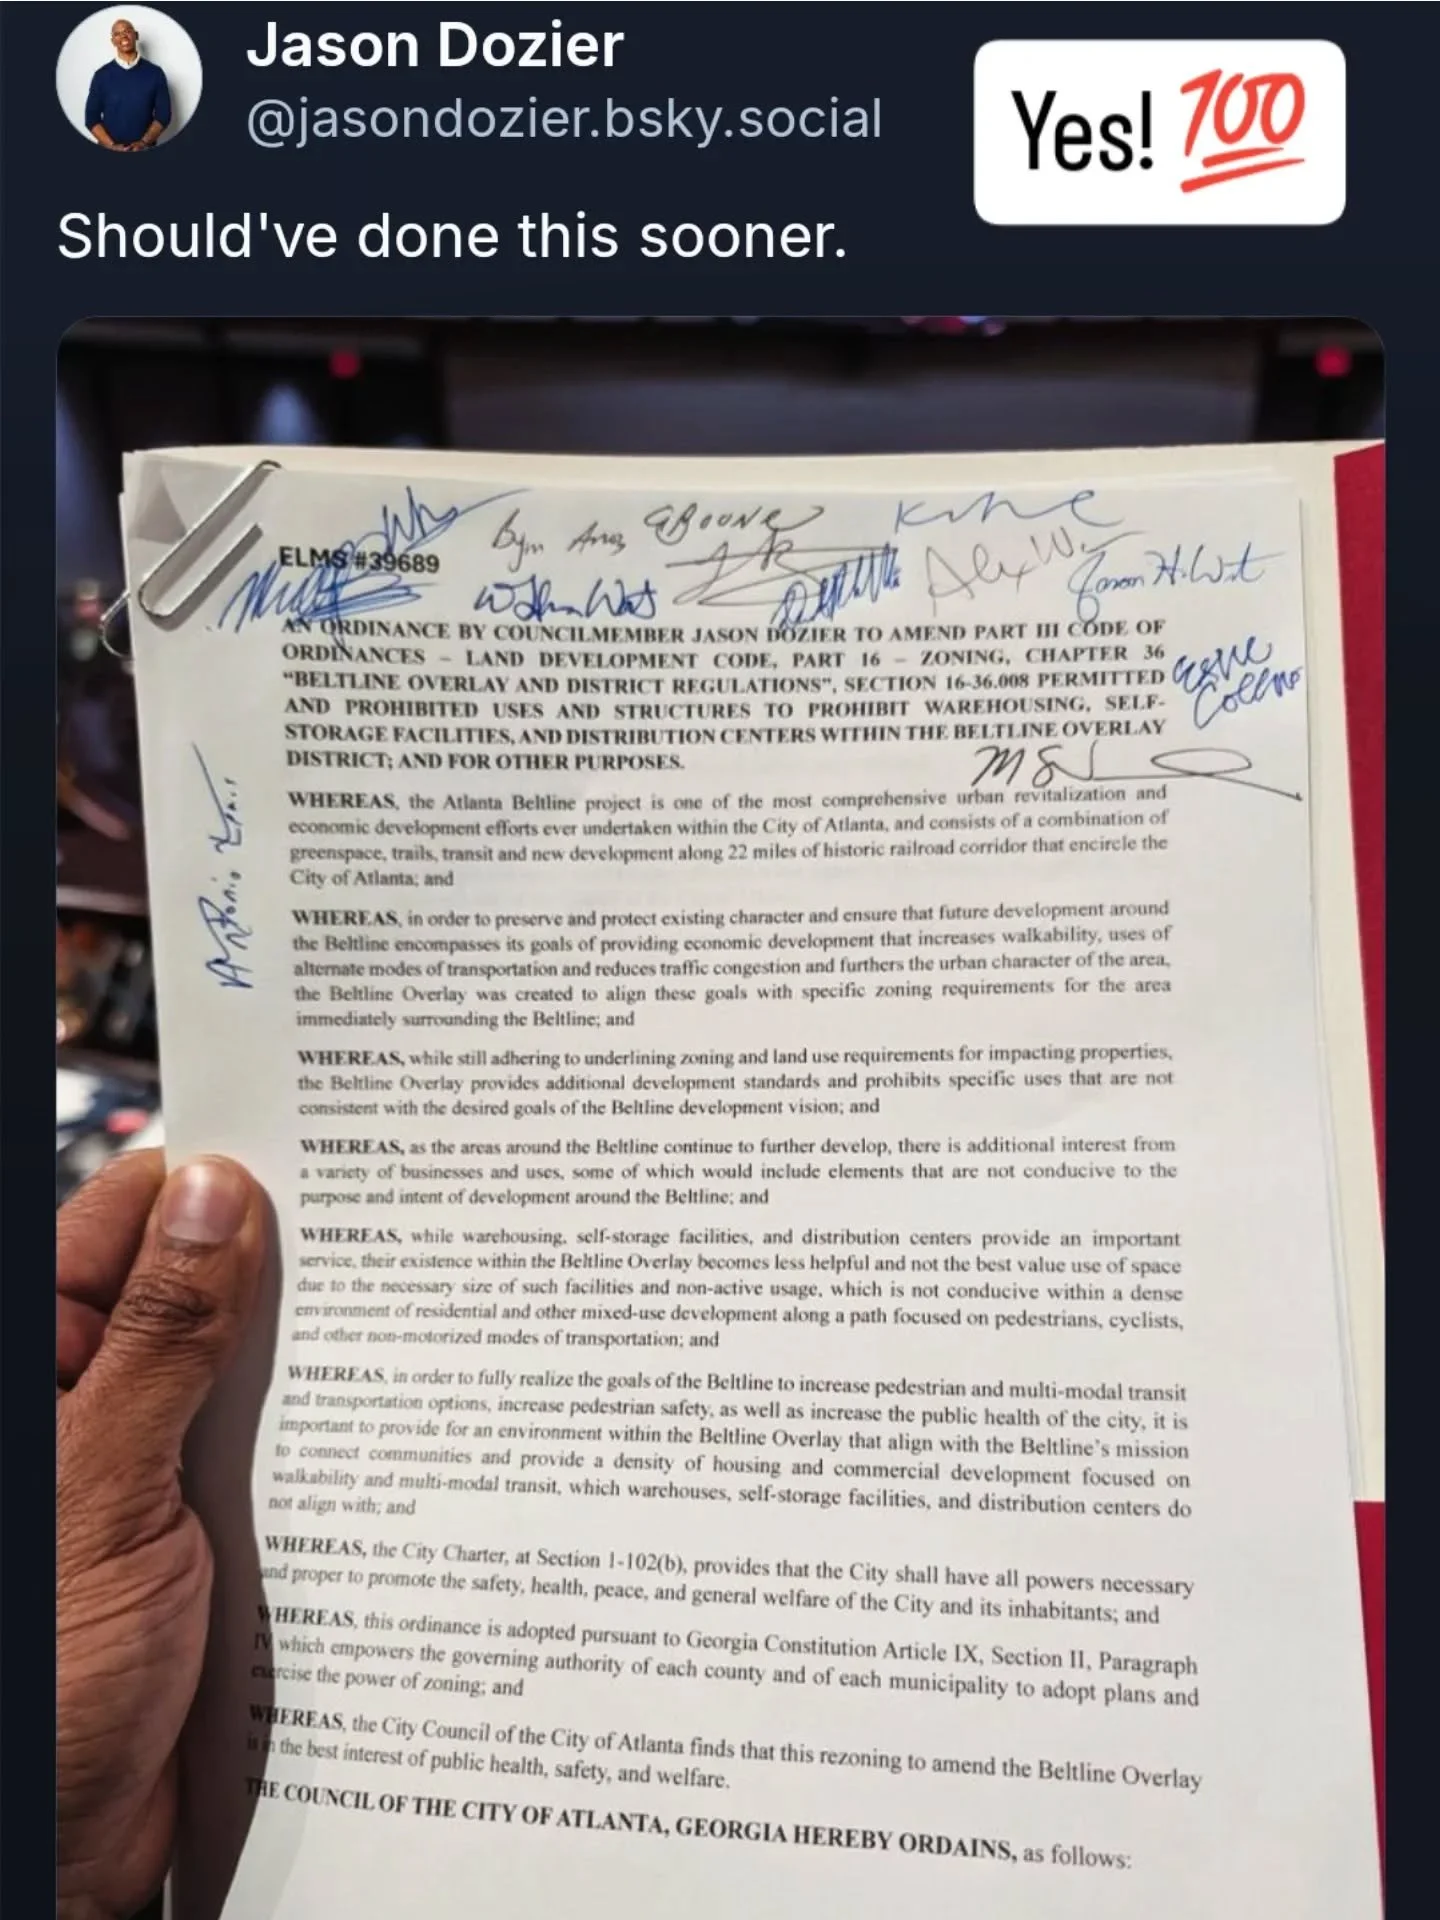 Jason Dozier
@jasondozier.bsky.social
Yes! 💯
Should've done this sooner.
GBOONE
ELMS #39689
Alex W.
Jason H. W
AN ORDINANCE BY COUNCILMEMBER JASON DOZIER TO AMEND PART III CODE OF
ORDINANCES – LAND DEVELOPMENT CODE, PART 16 – ZONING, CHAPTER 36
"BELTLINE OVERLAY AND DISTRICT REGULATIONS", SECTION 16-36.008 PERMITTED
AND PROHIBITED USES AND STRUCTURES TO PROHIBIT WAREHOUSING, SELF-
STORAGE FACILITIES, AND DISTRIBUTION CENTERS WITHIN THE BELTLINE OVERLAY
DISTRICT; AND FOR OTHER PURPOSES.
Collins
Antonio
WHEREAS, the Atlanta Beltline project is one of the most comprehensive urban revitalization and
economic development efforts ever undertaken within the City of Atlanta, and consists of a combination of
greenspace, trails, transit and new development along 22 miles of historic railroad corridor that encircle the
City of Atlanta; and
WHEREAS, in order to preserve and protect existing character and ensure that future development around
the Beltline encompasses its goals of providing economic development that increases walkability, uses of
alternate modes of transportation and reduces traffic congestion and furthers the urban character of the area,
the Beltline Overlay was created to align these goals with specific zoning requirements for the area
immediately surrounding the Beltline; and
WHEREAS, while still adhering to underlining zoning and land use requirements for impacting properties,
the Beltline Overlay provides additional development standards and prohibits specific uses that are not
consistent with the desired goals of the Beltline development vision; and
WHEREAS, as the areas around the Beltline continue to further develop, there is additional interest from
a variety of businesses and uses, some of which would include elements that are not conducive to the
purpose and intent of development around the Beltline; and
WHEREAS, while warehousing, self-storage facilities, and distribution centers provide an important
service, their existence within the Beltline Overlay becomes less helpful and not the best value use of space
due to the necessary size of such facilities and non-active usage, which is not conducive within a dense
environment of residential and other mixed-use development along a path focused on pedestrians, cyclists,
and other non-motorized modes of transportation; and
WHEREAS, in order to fully realize the goals of the Beltline to increase pedestrian and multi-modal transit
and transportation options, increase pedestrian safety, as well as increase the public health of the city, it is
important to provide for an environment within the Beltline Overlay that align with the Beltline's mission
to connect communities and provide a density of housing and commercial development focused on
walkability and multi-modal transit, which warehouses, self-storage facilities, and distribution centers do
not align with; and
WHEREAS, the City Charter, at Section 1-102(b), provides that the City shall have all powers necessary
and proper to promote the safety, health, peace, and general welfare of the City and its inhabitants; and
WHEREAS, this ordinance is adopted pursuant to Georgia Constitution Article IX, Section II, Paragraph
IV which empowers the governing authority of each county and of each municipality to adopt plans and
exercise the power of zoning; and
WHEREAS, the City Council of the City of Atlanta finds that this rezoning to amend the Beltline Overlay
is in the best interest of public health, safety, and welfare.
THE COUNCIL OF THE CITY OF ATLANTA, GEORGIA HEREBY ORDAINS, as follows: